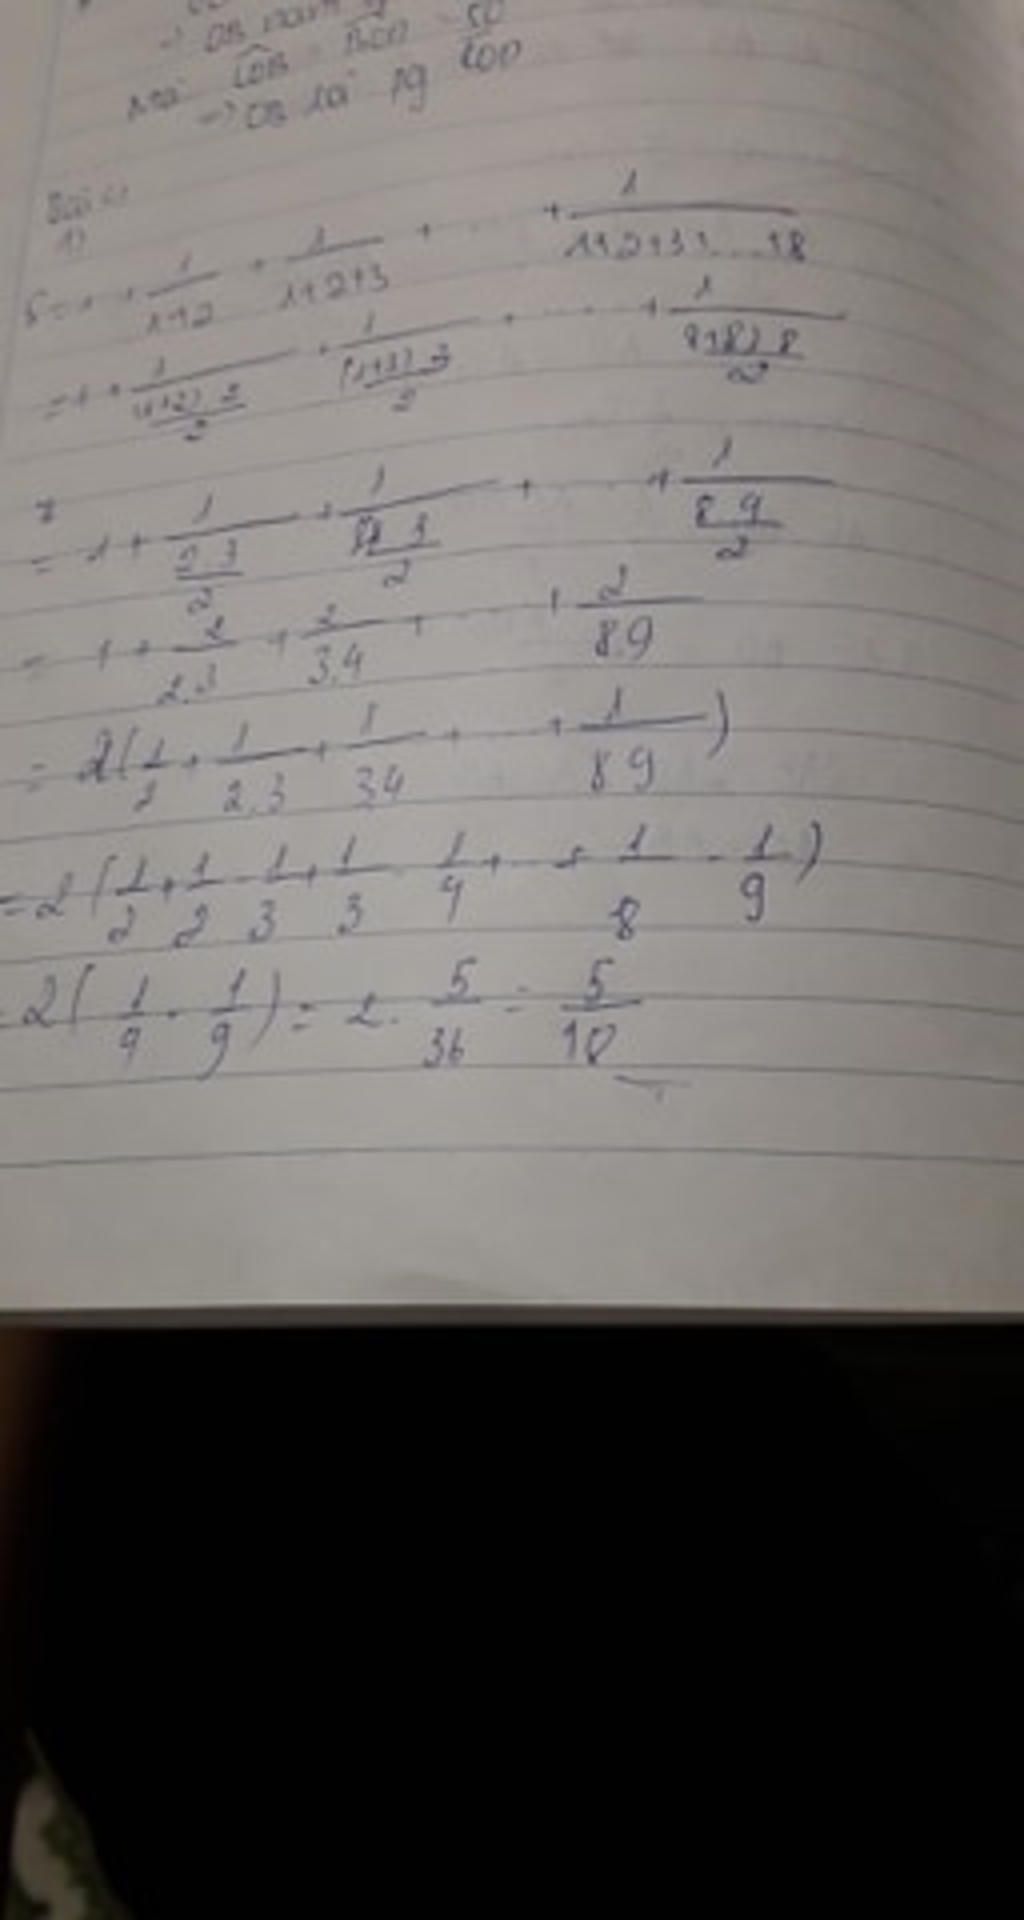 → OB
→ OB là pg
1)
S = 1 + 1/(1+2) + 1/(1+2+3) + ..... + 1/(1+2+3+....+8)
= 1 + 1/((1+2).2/2) + 1/((1+3).3/2) + ..... + 1/((1+8).8/2)
= 1 + 1/(2.3/2) + 1/(3/2) + ..... + 1/(8.9/2)
= 1 + 2/2.3 + 2/3.4 + ..... + 2/8.9
= 2(1/2 + 1/2.3 + 1/3.4 + ..... + 1/8.9)
= 2(1/2 + 1/2 - 1/3 + 1/3 - 1/4 + ... + 1/8 - 1/9)
2(1/9 - 1/9) = 2. 5/36 = 5/18